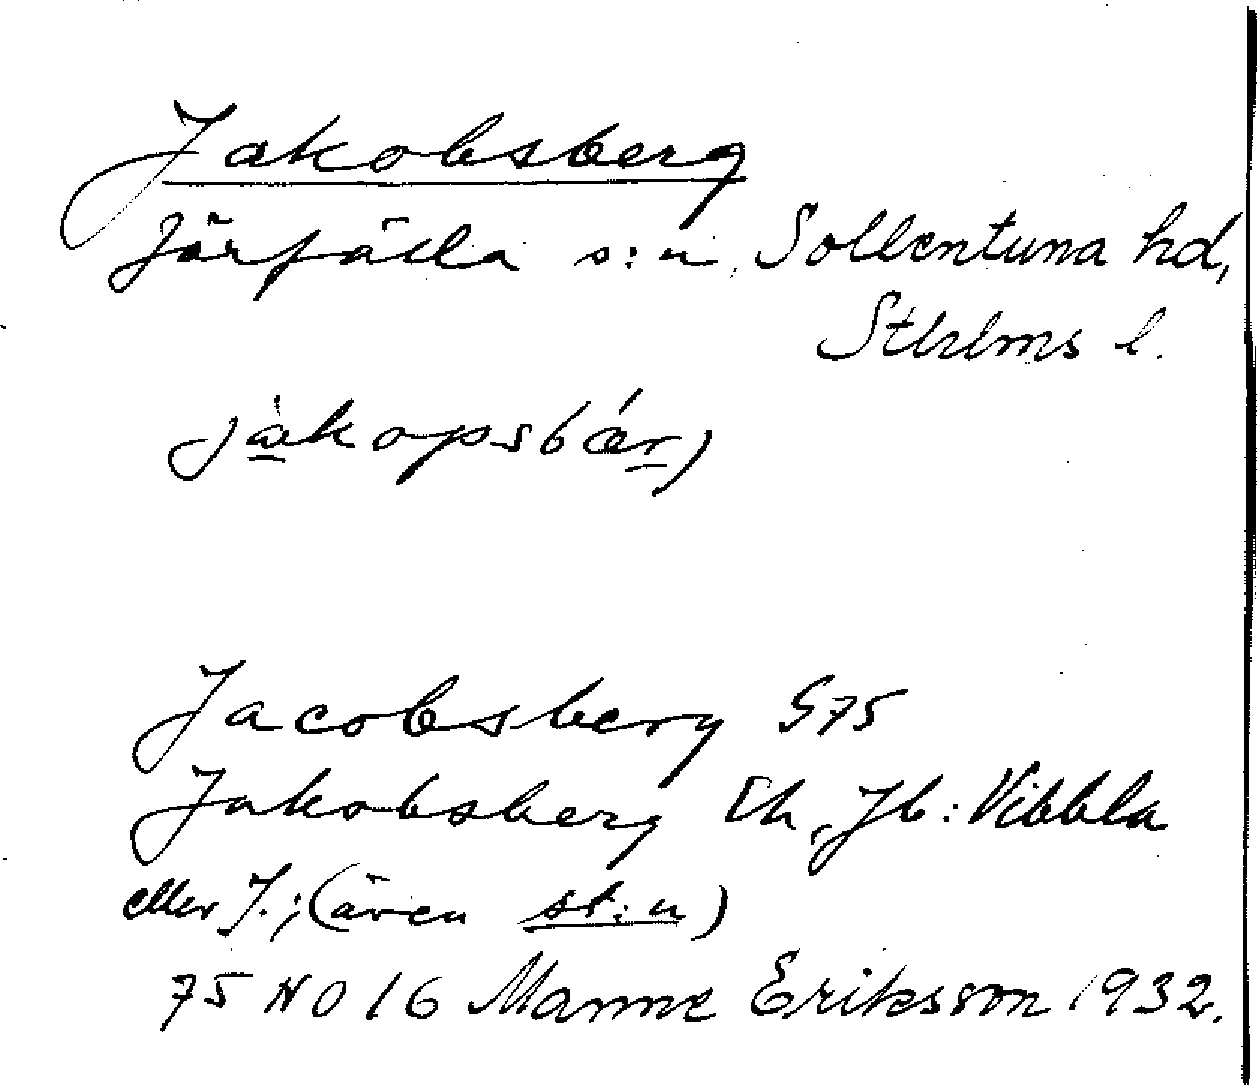 Jakobsberg
Järfälla s:n, Sollentuna hd,
Sthlms l.
jàkopsbǽrj
Jacobsberg S75
Jakobsberg Eh, Jb: Vibbla
eller J.; (även st:n)
75 NO 16 Manne Eriksson 1932.